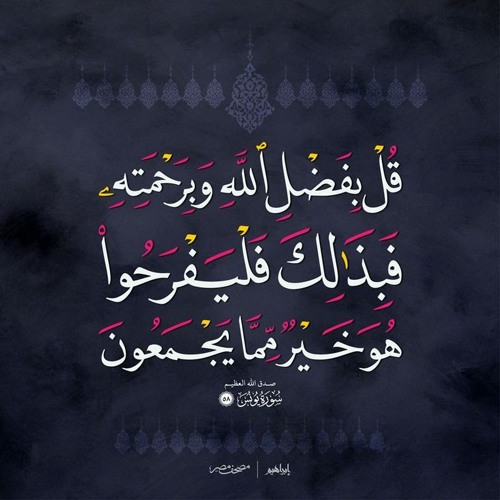 قُلْ بِفَضْلِ ٱللَّهِ وَبِرَحْمَتِهِۦ
فَبِذَٰلِكَ فَلْيَفْرَحُوا۟
هُوَ خَيْرٌ مِّمَّا يَجْمَعُونَ
صدق الله العظيم
سُورَةُ يُونُس ٥٨
إبراهيم | مصحف مصر